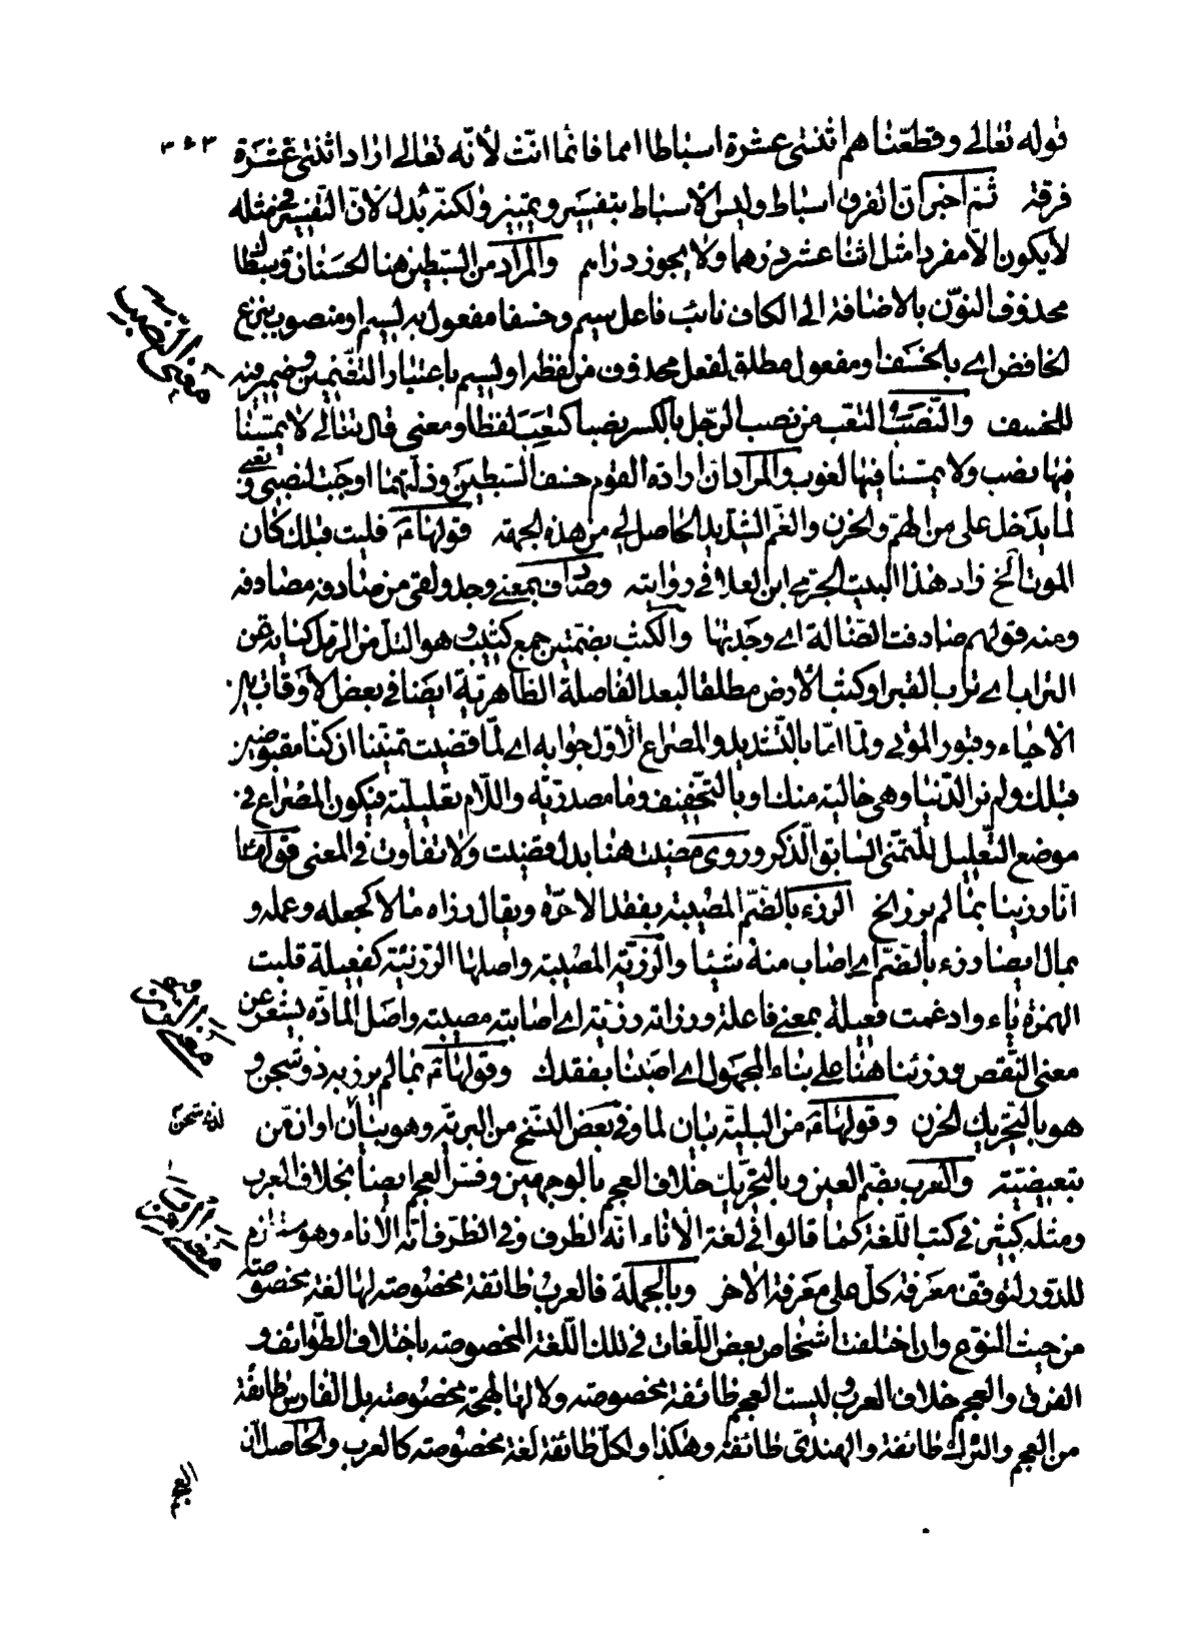 ٣٤٣
قوله تعالى وقطعناهم اثنتى عشرة اسباطا امما فانما انث لأنّه تعالى اراد اثنتى عشرة
فرقة ثمّ اخبر ان الفرق اسباط وليس الأسباط بتفسير وتمييز ولكنّه بدل لانّ التفسير مثله
لايكون الّا مفردا مثل اثنا عشر درهما ولا يجوز دراهم والمراد من السّبطين هنا الحسنان وسبطا
محذوف النّون بالاضافة الى الكاف نائب فاعل سيم وخسفا مفعول به لسيم او منصوب بنزع
الخافض اى بالخسف او مفعول مطلق لفعل محذوف من لفظه او لسيم باعتبار التضمين وضمير فيه
للخسف والنّصَب التعب من نصب الرّجل بالكسر نصبا كتعب لفظا ومعنى قال تعالى لا يمسّنا
فيها نصب ولا يمسّنا فيها لغوب والمراد ان ارادة القوم خسف السّبطين وذلّتهما اوجب لنصبى وتعبى
لما يدخل علىّ من الهمّ والحزن والغمّ الشّديد الحاصل لى من هذه الجهة قولها فليت قبلك كان
الموت الخ زاد هذا البيت الجرمى ابن العلا فى روايته وصادف بمعنى وجد ولقى من صادفه مصادفة
ومنه قولهم صادفت الضّالة اى وجدتها والكثب بضمّتين جمع كثيب وهو التلّ من الرّمل كناية عن
التراب اى تراب القبر او كثب الأرض مطلقا لبعد الفاصلة الظّاهريّة ايضا فى بعض الأوقات بين
الأحياء وقبور الموتى ولمّا امّا بالتّشديد والمصراع الأوّل جوابه اى لمّا قضيت تمنّينا ان كنّا مقبوضين
قبلك ولم نر الدّنيا وهى خالية منك او بالتّخفيف وما مصدريّة واللّام تعليليّة فيكون المصراع فى
موضع التّعليل للتمنّى السّابق الذّكر وروى مضيت هنا بدل قضيت ولا تفاوت فى المعنى قولها
انّا رزينا بما لم يرز الخ الرزء بالضّمّ المصيبة بفقد الاحزّة ويقال رزاه مالا كجعله وعمله و
بمال ايضا رزء بالضّمّ اى اصاب منه شيئا والرّزيّة المصيبة واصلها الرّزيئة كفعيلة قلبت
الهمزة ياء وادغمت فعيلة بمعنى فاعلة ورزاته رزيئة اى اصابته مصيبة واصل المادّة يشعر عن
معنى النّقص ورزئنا هنا على بناء المجهول اى اصبنا بفقدك وقولها بما لم يرز به ذو شجن و
هو بالتحريك الحزن وقولها من البليّة بيان لما وفى بعض النّسخ من البريّة وهو بيان او ان من
تبعيضيّة والعرب بضمّ العين وبالتحريك خلاف العجم بالوجهين وفسّر العجم ايضا بخلاف العرب
ومثله كثير فى كتب اللّغة كما قالوا فى لغة الأناء انّه الظرف وفى الظّرف انّه الأناء وهو مستلزم
للدّور لتوقّف معرفة كلّ على معرفة الأخر وبالجملة فالعرب طائفة مخصوصة لها لغة مخصوصة
من حيث النّوع وان اختلفت اشخاص بعض اللّغات فى تلك اللّغة المخصوصة باختلاف الطّوائف و
الفرق والعجم خلاف العرب وليست العجم طائفة مخصوصة ولا لها لهجة مخصوصة بل الفارس طائفة
من العجم والترك طائفة والهندى طائفة وهكذا ولكلّ طائفة لغة مخصوصة كالعرب والحاصل انّ
العجم